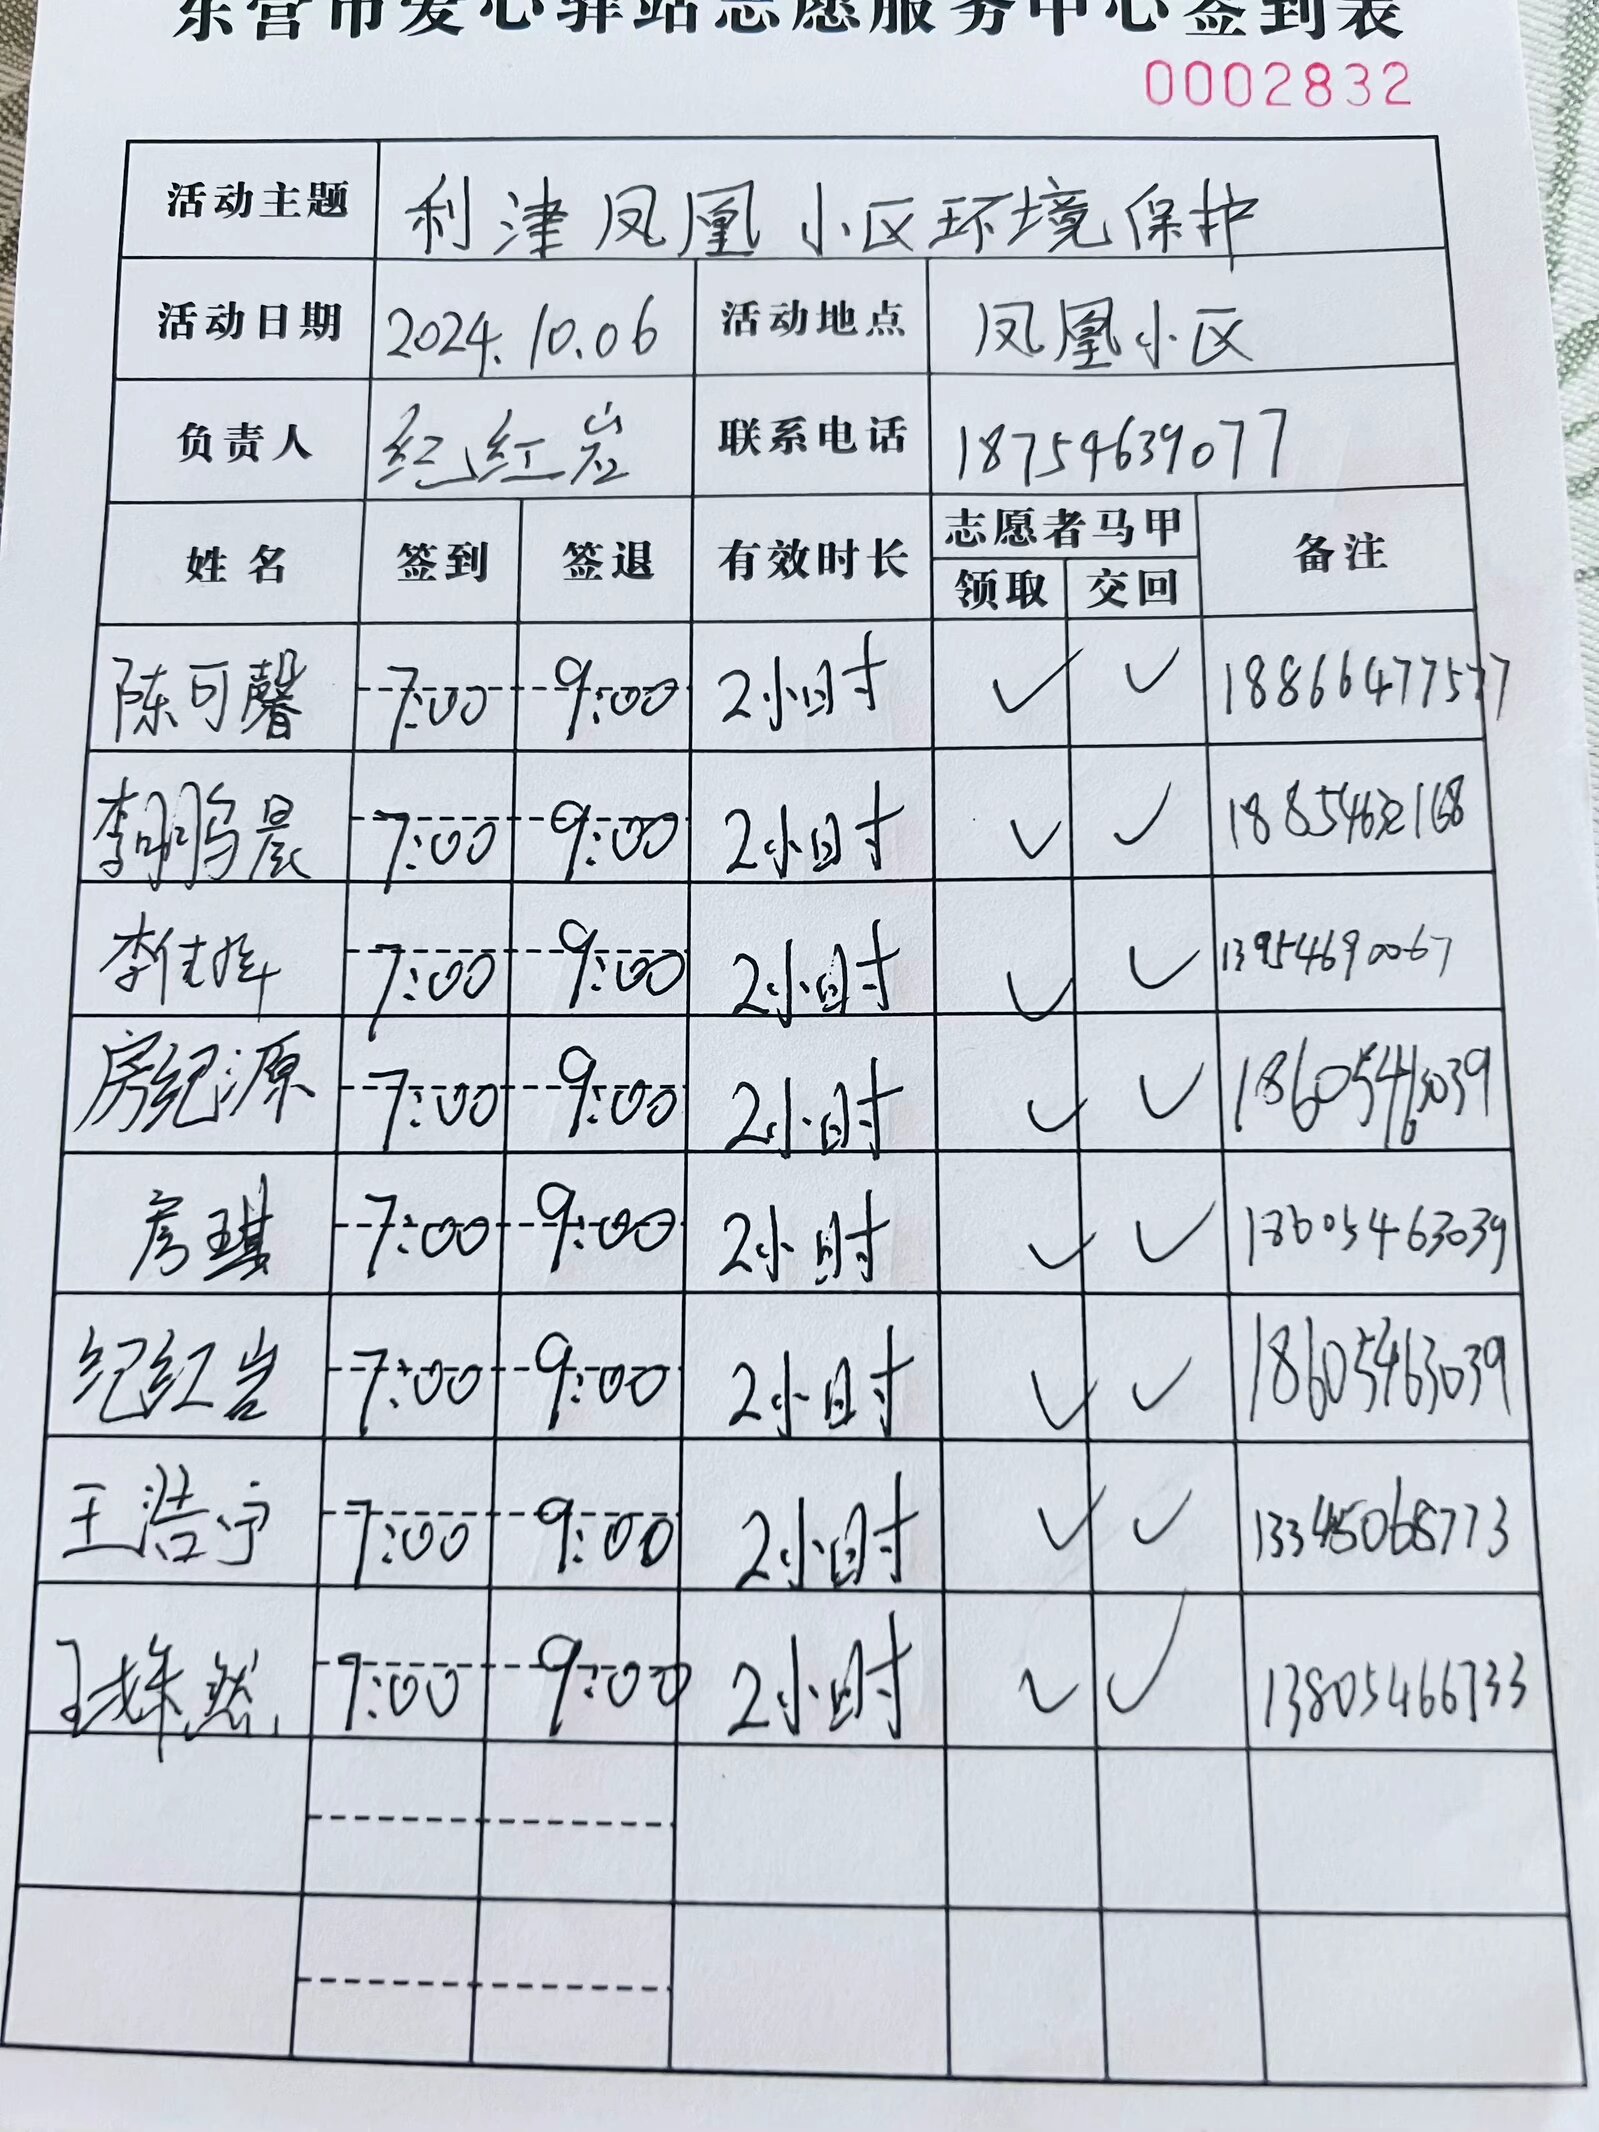 东营市爱心驿站志愿服务中心签到表
0002832
活动主题 利津凤凰小区环境保护
活动日期 2024.10.06 活动地点 凤凰小区
负责人 纪红岩 联系电话 18754639077
姓名 签到 签退 有效时长 志愿者马甲 备注
领取 交回
陈可馨 7:00 9:00 2小时 ✓ ✓ 18866477577
李鹏晨 7:00 9:00 2小时 ✓ ✓
李佳烨 7:00 9:00 2小时 ✓ ✓ 13954690067
房纪源 7:00 9:00 2小时 ✓ ✓ 18605463039
房琪 7:00 9:00 2小时 ✓ ✓ 18605463039
纪红岩 7:00 9:00 2小时 ✓ ✓ 18605463039
王浩宁 7:00 9:00 2小时 ✓ ✓ 13345068773
王姝然 7:00 9:00 2小时 ✓ ✓ 13805466733